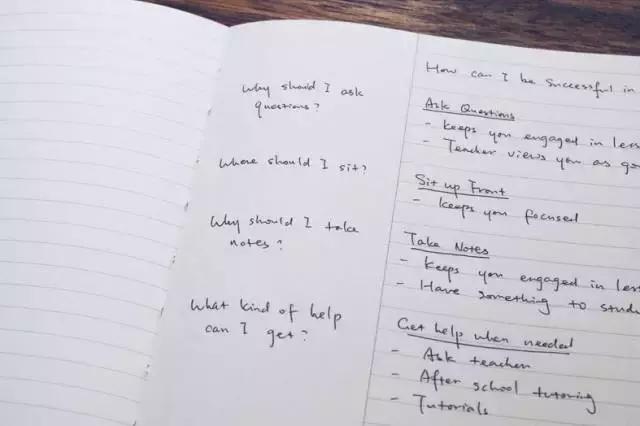 Why should I ask
questions?
Where should I sit?
Why should I take
notes?
What kind of help
can I get?
How can I be successful in
Ask Questions
- Keeps you engaged in
- Teacher views you as
Sit up Front
- Keeps you focused
Take Notes
- Keeps you engaged in
- Have something to
Get help when needed
- Ask teacher
- After school tutoring
- Tutorials